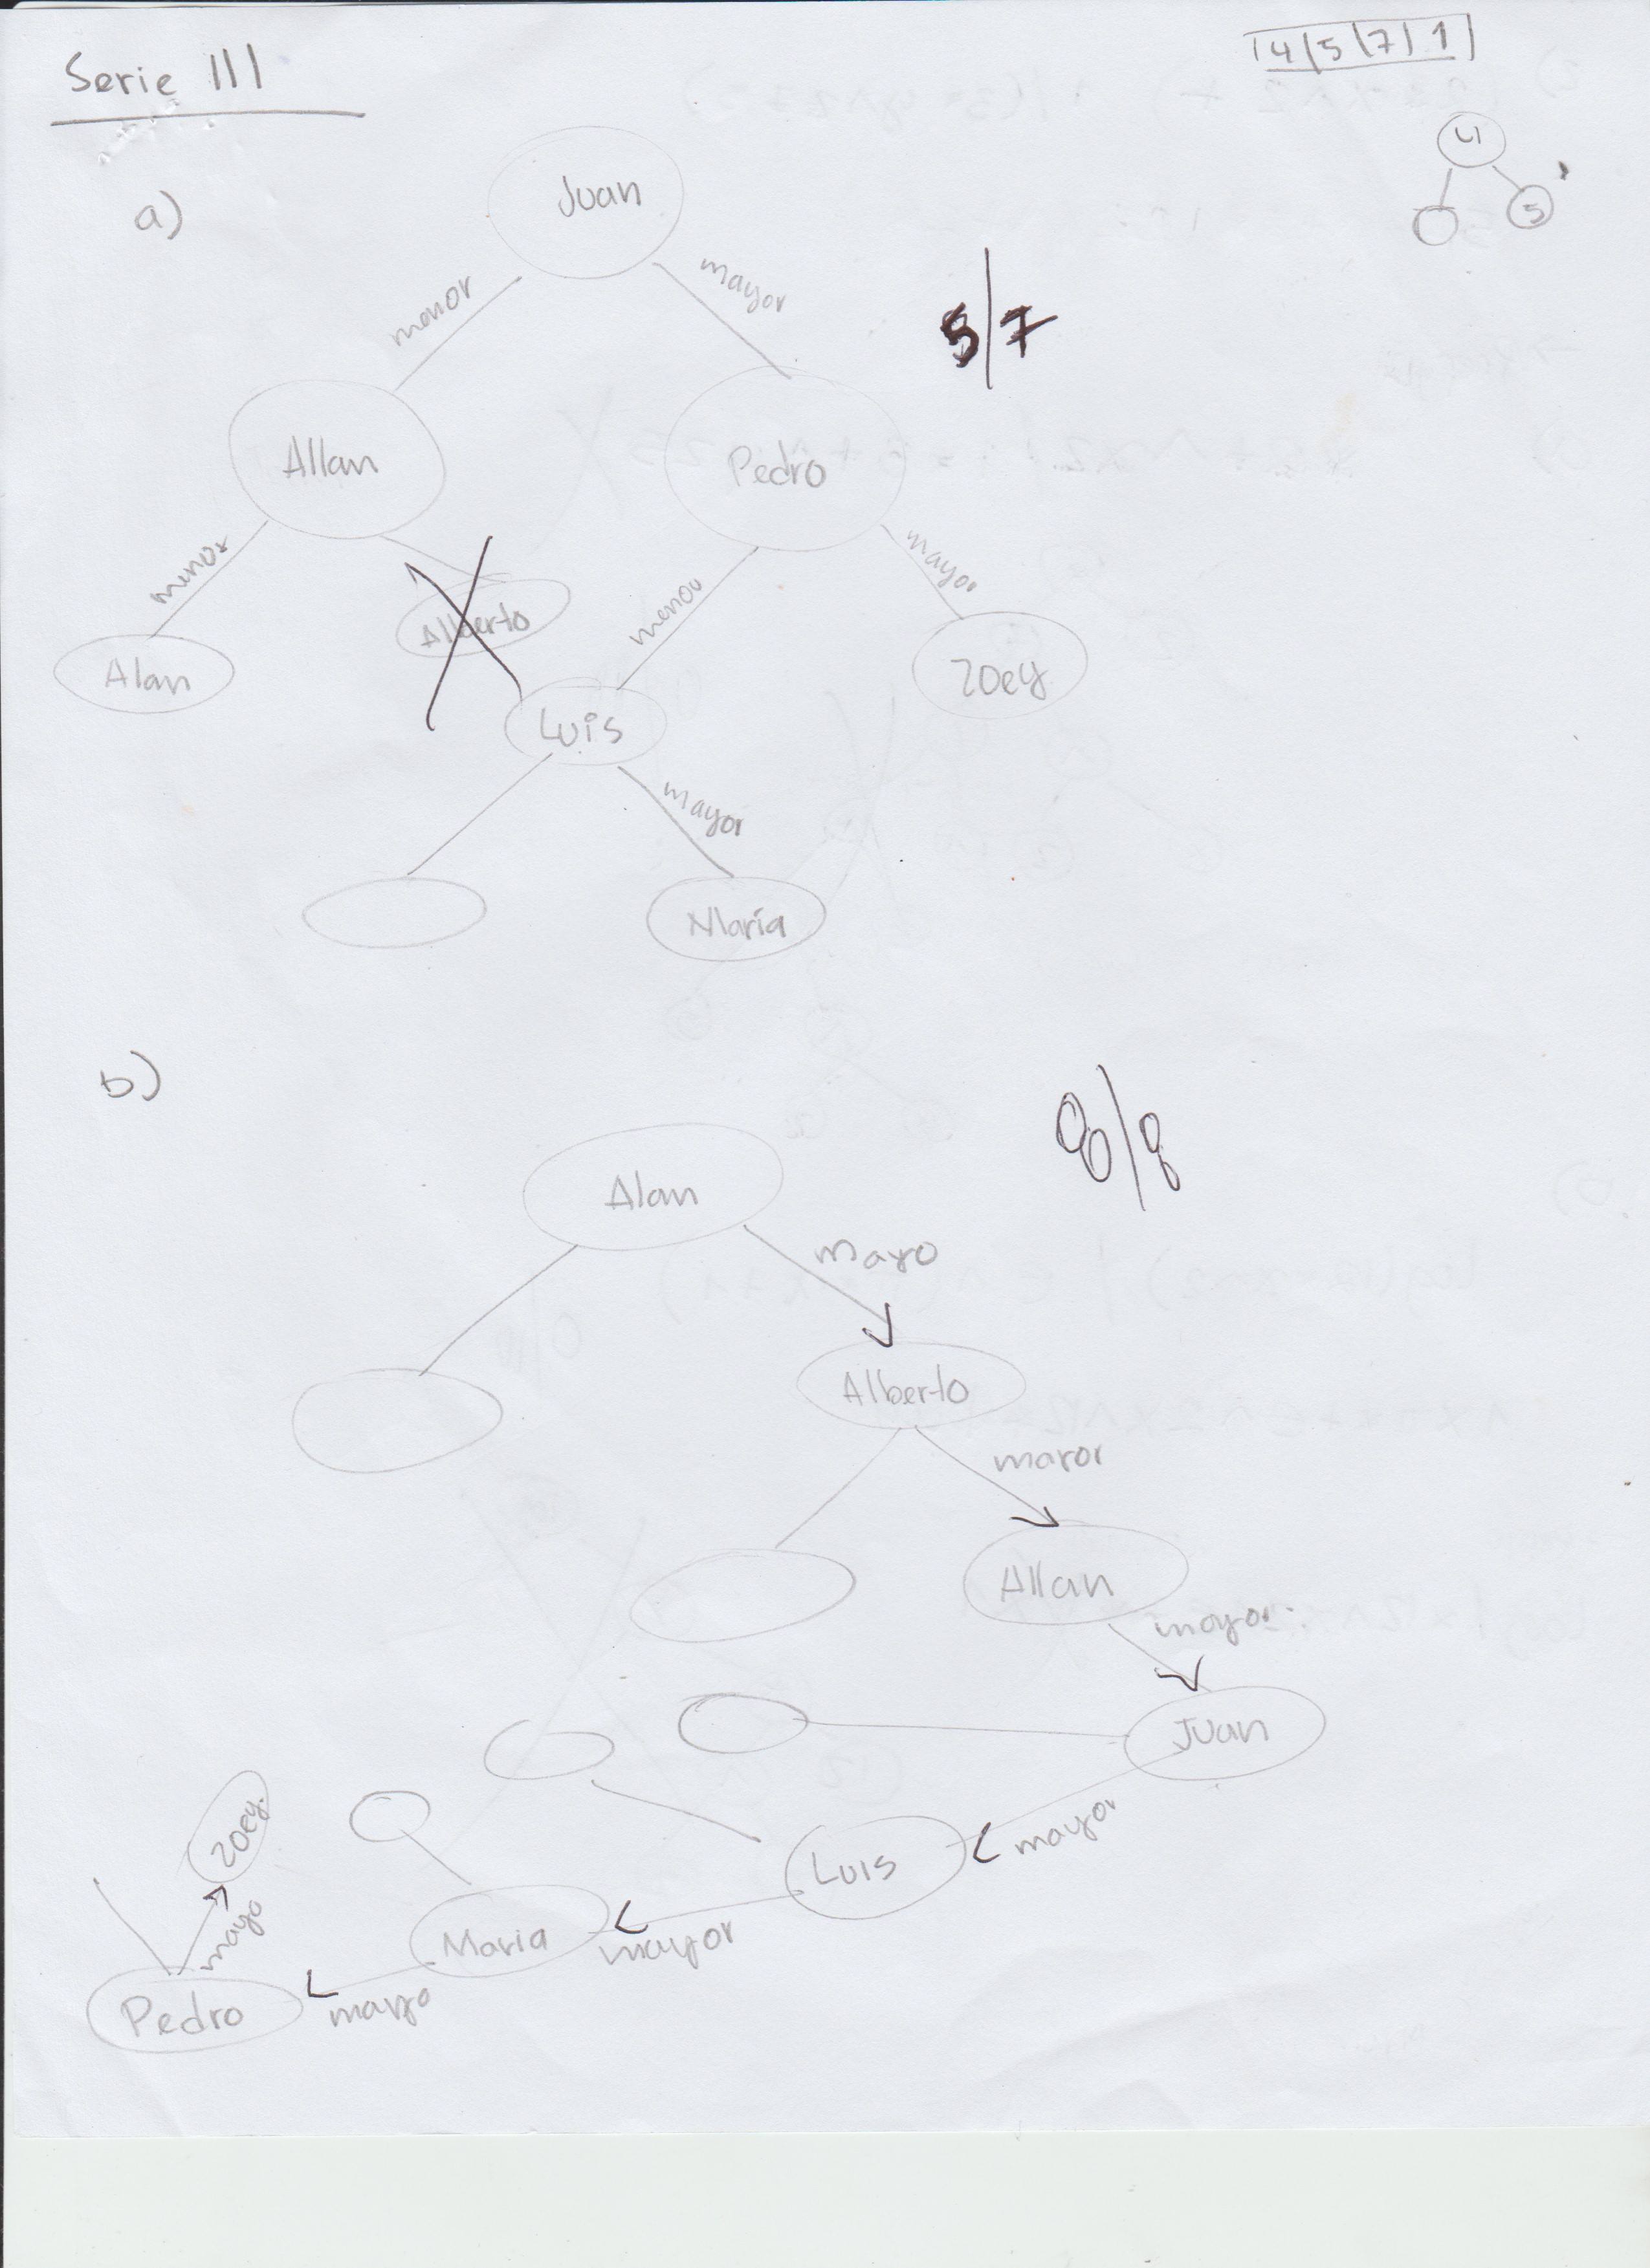 Serie III
4/5/7/1
4
5
a)
Juan
menor
mayor
5/7
Allan
Pedro
menor
Alberto
menor
mayor
Alan
Luis
Zoey
mayor
María
b)
8/8
Alan
mayo
Alberto
maror
Allan
mayor
Juan
mayor
Luis
mayor
Maria
mayo
Pedro
mayo
Zoey